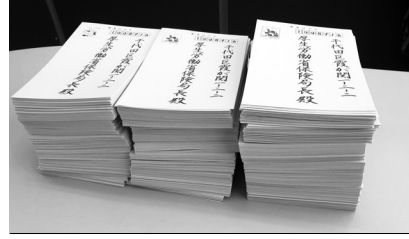 千代田区霞が関一-二-二
厚生労働省保険局長殿
千代田区霞が関一-二-二
厚生労働省保険局長殿
千代田区霞が関一-二-二
厚生労働省保険局長殿